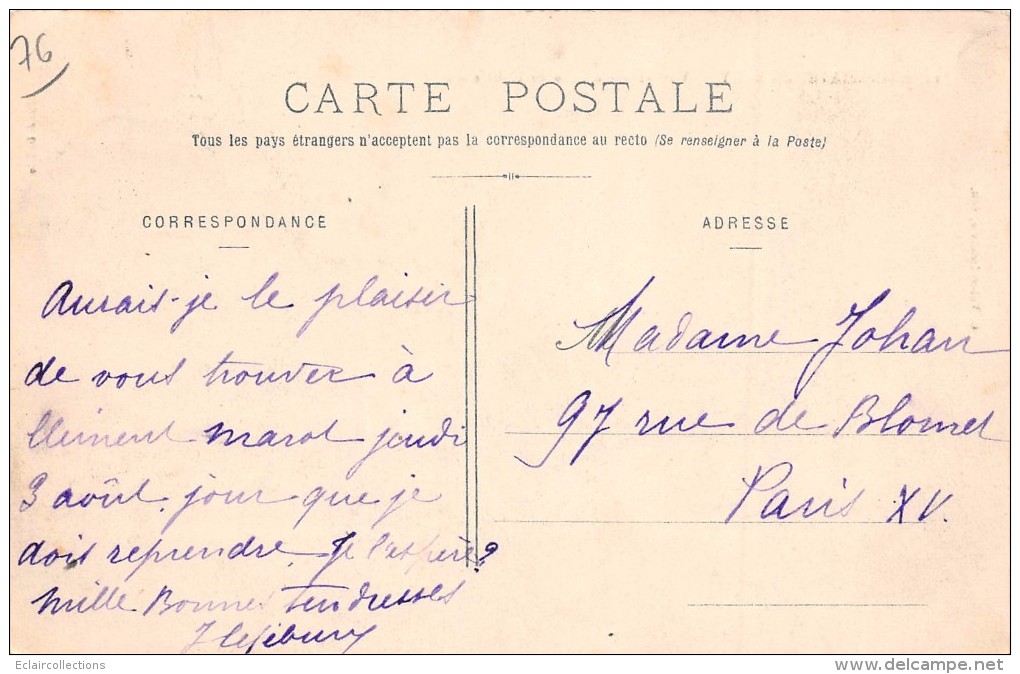 76
CARTE POSTALE
Tous les pays étrangers n'acceptent pas la correspondance au recto (Se renseigner à la Poste)
CORRESPONDANCE
Aurais-je le plaisir
de vous trouver à
Clément marot jeudi
3 août, jour que je
dois reprendre. Je l'espère?
mille Bonnes tendresses
ADRESSE
Madame Johan
97 rue de Blomet
Paris XV.
Eclaircollections
www.delcampe.net